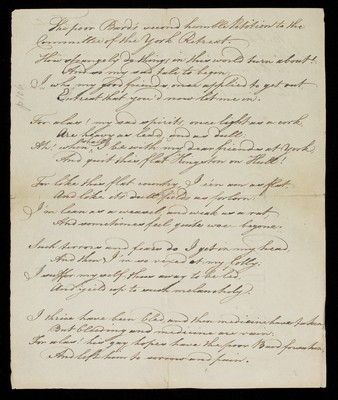 The poor Bard's second humble Petition to the
Committee of the York Retreat
How strangely do things in this world turn about!
And so my sad tale to begin
I, who my good friends, once applied to get out
Entreat that you'd now let me in.
For alas! my sad spirits, once light as a cork
Are heavy as lead, and as dull
Ah! when shall I be with my dear friends at York
And quit this flat Kingston on Hull!
For like this flat country I e'en am as flat
And like its dull fields as forlorn
I'm lean as a weasel, and weak as a rat
And sometimes feel quite woe begone.
Such terrors and fears do I get in my head
And then I'm so vexed at my folly
I suffer myself thus away to be led
And yield up to such melancholy.
I thrice have been bled and then medicine have taken
But bleeding and medicine are vain
For alas! his gay hopes have the poor Bard forsaken
And left him to sorrow and pain.